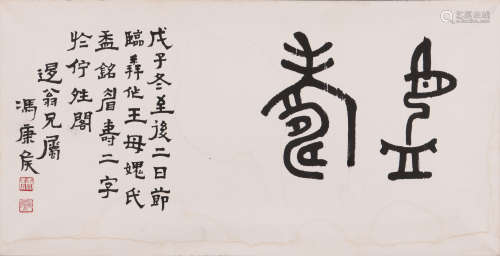 眉壽
戊子冬至後二日節
臨羲妣王母媿氏
盉銘眉壽二字
於佇姓閣
邊翁兄屬
馮康侯